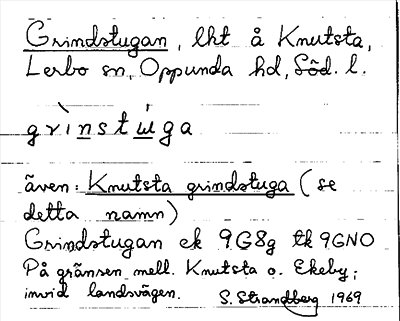 Grindstugan, lht å Knutsta,
Lerbo sn, Oppunda hd, Söd. l.
grìnstu̇ga
även: Knutsta grindstuga (se
detta namn)
Grindstugan ek 9G8g tk 9GNO
På gränsen mell. Knutsta o. Ekeby;
invid landsvägen. S. Strandberg 1969